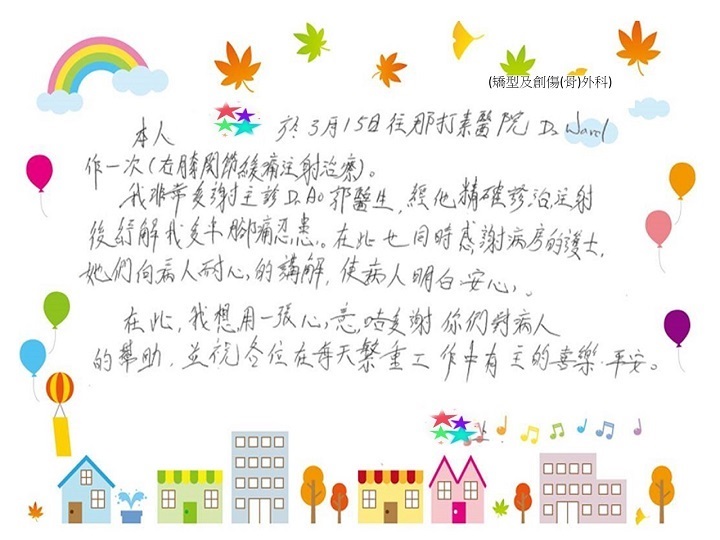 (矯型及創傷(骨)外科)
本人 於3月15日往那打素醫院 D
作一次(右膝關節緩痛注射治療)。
我非常多謝主診 D. Ao 鄂醫生, 經他精確診治注射
後紓解我多年腳痛忍患。在此也同時感謝病房的護士,
她們向病人耐心的講解, 使病人明白安心,
在此, 我想用一張心意咭多謝你們對病人
的幫助, 並祝各位在每天繁重工作中有主的喜樂平安。